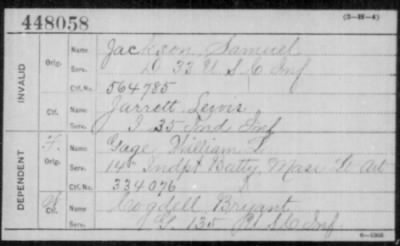 448058 (3—H—4)
INVALID
Orig. Name Jackson, Samuel
Serv. D 33 U S C Inf
Ctf. No. 564785
Ctf. Name Jarrett Lewis
Serv. I 35 Ind Inf
DEPENDENT
Orig. Name Gage, William
Serv. 14" Indpt Batty, Mass Lt Art
Ctf. No. 334076
Ctf. Name Cogdell Bryant
Serv. G 135 U S C Inf